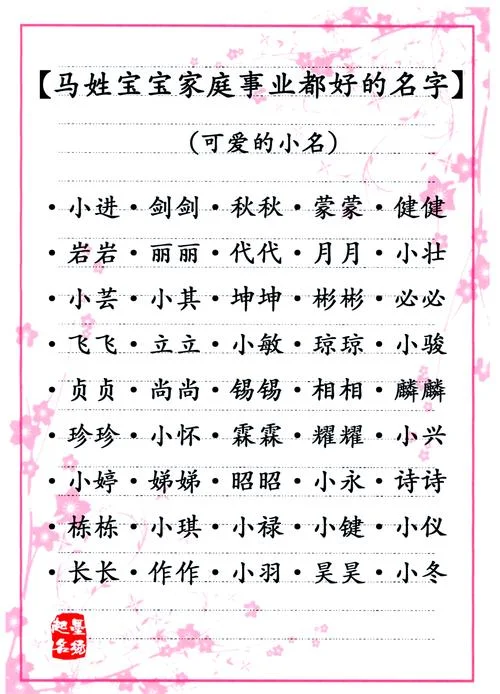 【马姓宝宝家庭事业都好的名字】
(可爱的小名)
·小进·剑剑·秋秋·蒙蒙·健健
·岩岩·丽丽·代代·月月·小壮
·小芸·小其·坤坤·彬彬·必必
·飞飞·立立·小敏·琼琼·小骏
·贞贞·尚尚·锡锡·相相·麟麟
·珍珍·小怀·霖霖·耀耀·小兴
·小婷·娣娣·昭昭·小永·诗诗
·栋栋·小琪·小禄·小键·小仪
·长长·作作·小羽·昊昊·小冬